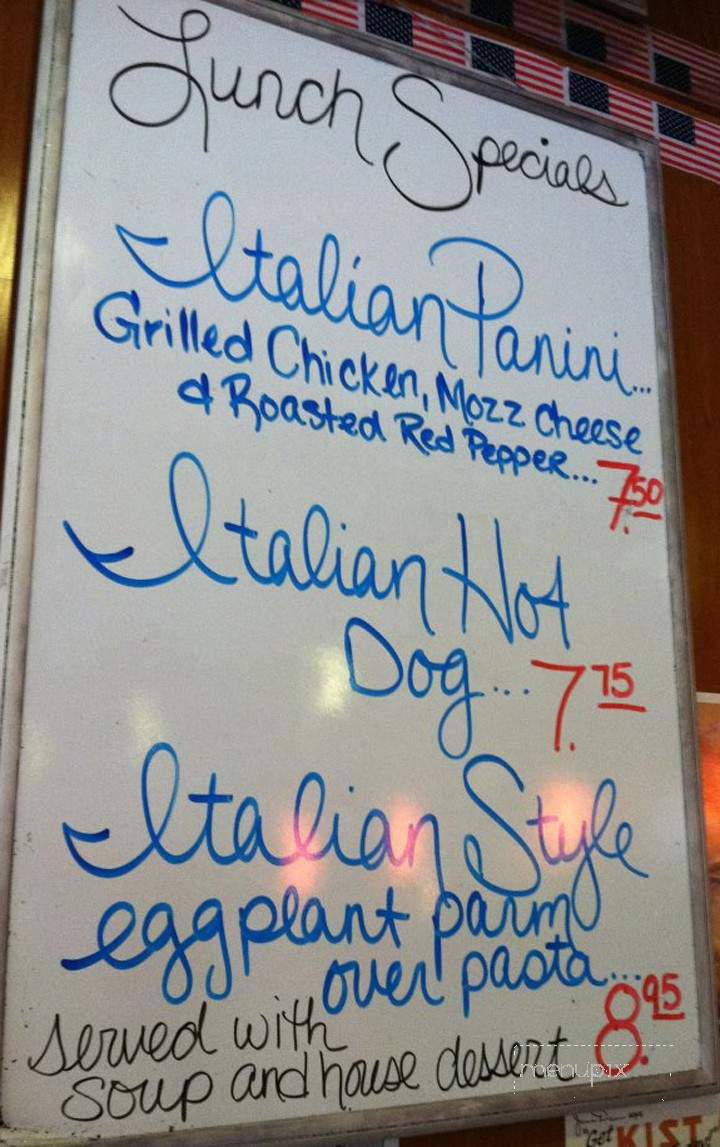 Lunch Specials
Italian Panini...
Grilled Chicken, Mozz Cheese
& Roasted Red Pepper... 7.50
Italian Hot
Dog... 7.75
Italian Style
eggplant parm
over pasta... 8.95
served with
soup and house dessert
menupix
"Get KIST